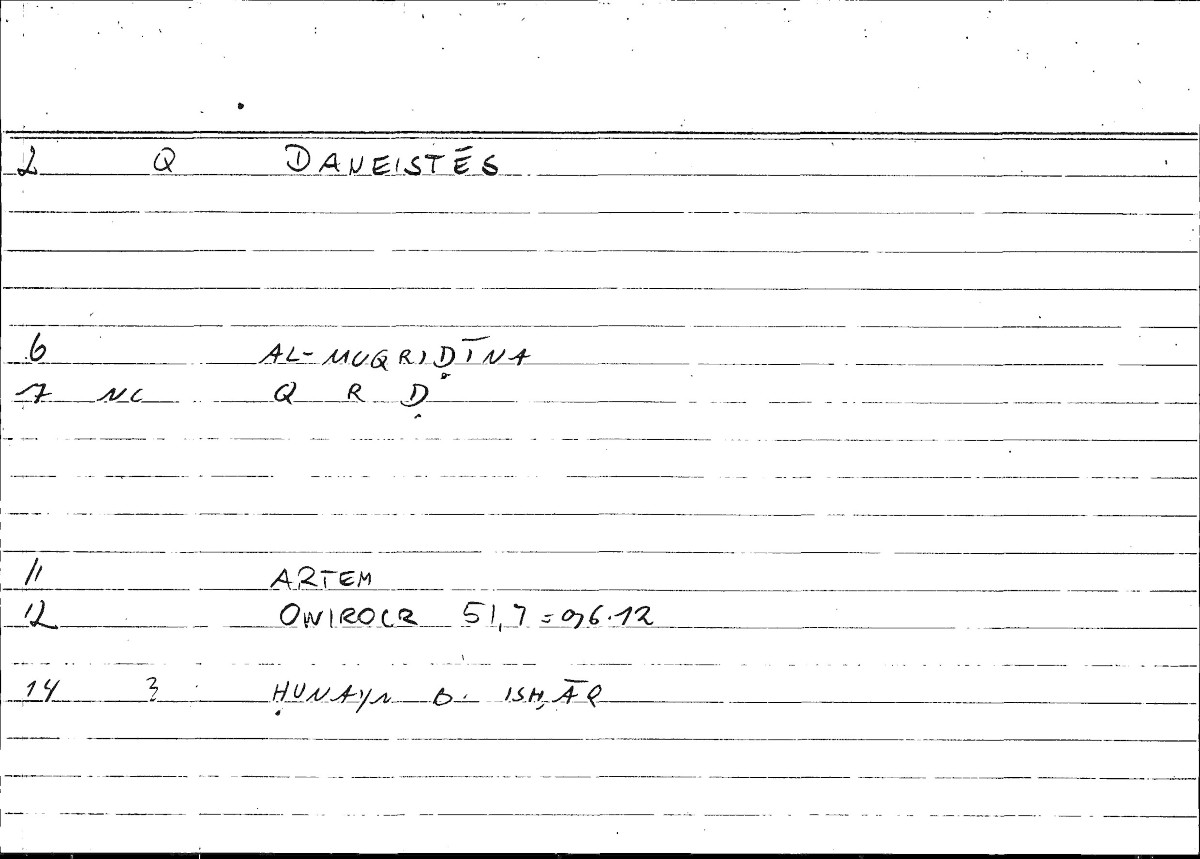 2 Q DANEISTĒS
6 AL-MUQRIḌĪNA
7 NC Q R Ḍ
11 ARTEM
12 ONIROCR 51,7 = 96.12
14 3 ḤUNAYN B. ISḤĀQ